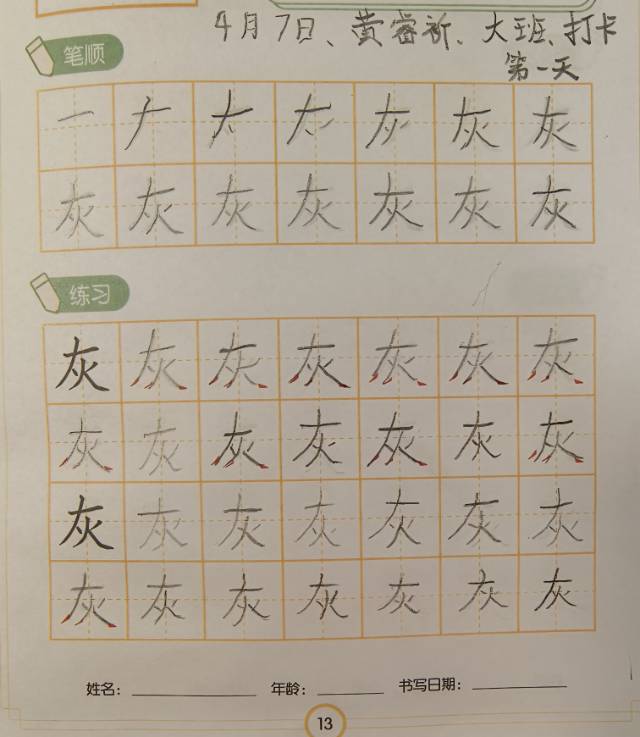 4月7日、黄睿祈、大班、打卡
第一天
笔顺
灰灰灰
灰灰灰灰灰灰灰
练习
灰灰灰灰灰灰灰
灰灰灰灰灰灰灰
灰灰灰灰灰灰灰
灰灰灰灰灰灰灰
姓名： 年龄： 书写日期：
13